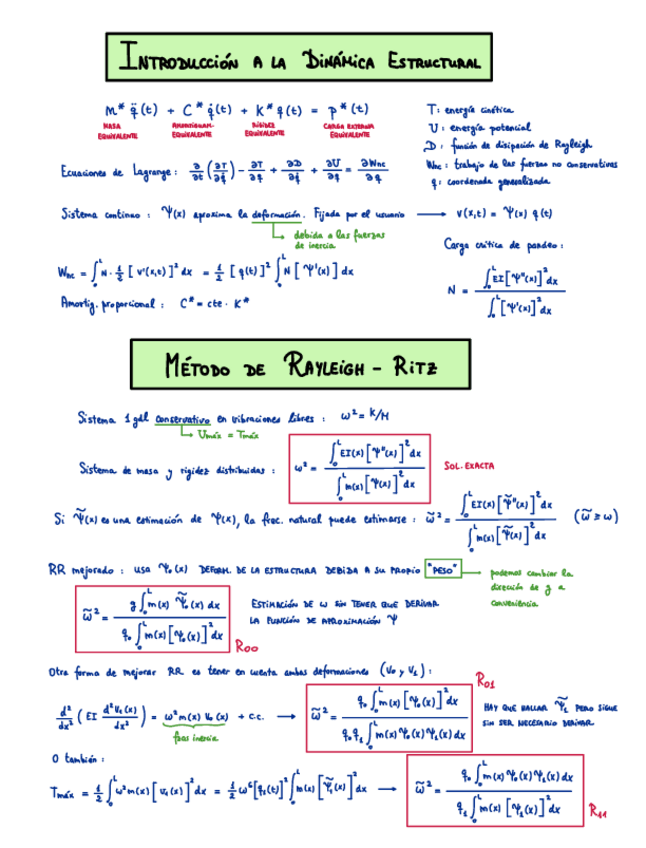 INTRODUCCIÓN A LA DINÁMICA ESTRUCTURAL
M* q̈(t) + C* q̇(t) + K* q(t) = p*(t)
MASA EQUIVALENTE
AMORTIGUAM. EQUIVALENTE
RIGIDEZ EQUIVALENTE
CARGA EXTERNA EQUIVALENTE
T: energía cinética
U: energía potencial
D: función de disipación de Rayleigh
Wnc: trabajo de las fuerzas no conservativas
q: coordenada generalizada
Ecuaciones de Lagrange: ∂/∂t (∂T/∂q̇) - ∂T/∂q + ∂D/∂q̇ + ∂U/∂q = ∂Wnc/∂q
Sistema continuo: Ψ(x) aproxima la deformación. Fijada por el usuario → v(x,t) = Ψ(x) q(t)
debida a las fuerzas de inercia
Carga crítica de pandeo:
Wnc = ∫₀ᴸ N · 1/2 [v'(x,t)]² dx = 1/2 [q(t)]² ∫₀ᴸ N [Ψ'(x)] dx
N = ∫₀ᴸ EI[Ψ''(x)]² dx / ∫₀ᴸ [Ψ'(x)]² dx
Amortig. proporcional: C* = cte · K*
MÉTODO DE RAYLEIGH - RITZ
Sistema 1 gdl conservativo en vibraciones libres: ω² = K/M
Umáx = Tmáx
Sistema de masa y rigidez distribuidas: ω² = ∫₀ᴸ EI(x)[Ψ''(x)]² dx / ∫₀ᴸ m(x)[Ψ(x)]² dx
SOL. EXACTA
Si Ψ̃(x) es una estimación de Ψ(x), la frec. natural puede estimarse: ω̃² = ∫₀ᴸ EI(x)[Ψ̃''(x)]² dx / ∫₀ᴸ m(x)[Ψ̃(x)]² dx (ω̃ ≥ ω)
RR mejorado: usa Ψ₀(x) DEFORM. DE LA ESTRUCTURA DEBIDA A SU PROPIO "PESO" → podemos cambiar la dirección de g a conveniencia
ω̃² = g ∫₀ᴸ m(x) Ψ̃₀(x) dx / q₀ ∫₀ᴸ m(x)[Ψ₀(x)]² dx
R00
ESTIMACIÓN DE ω SIN TENER QUE DERIVAR
LA FUNCIÓN DE APROXIMACIÓN Ψ
Otra forma de mejorar RR es tener en cuenta ambas deformaciones (V₀ y V₁):
R01
d²/dx² (EI d²V₁(x)/dx²) = ω² m(x) V₀(x) + c.c. → ω̃² = q₀ ∫₀ᴸ m(x)[Ψ₀(x)]² dx / q₀q₁ ∫₀ᴸ m(x) Ψ₀(x) Ψ₁(x) dx
fzas inercia
HAY QUE HALLAR Ψ̃₁ PERO SIGUE
SIN SER NECESARIO DERIVAR
O también:
Tmáx = 1/2 ∫₀ᴸ ω² m(x) [V₁(x)]² dx = 1/2 ω⁶ [q₁(t)]² ∫₀ᴸ m(x) [Ψ̃₁(x)]² dx → ω̃² = q₀ ∫₀ᴸ m(x) Ψ₀(x) Ψ₁(x) dx / q₁ ∫₀ᴸ m(x) [Ψ₁(x)]² dx
R11